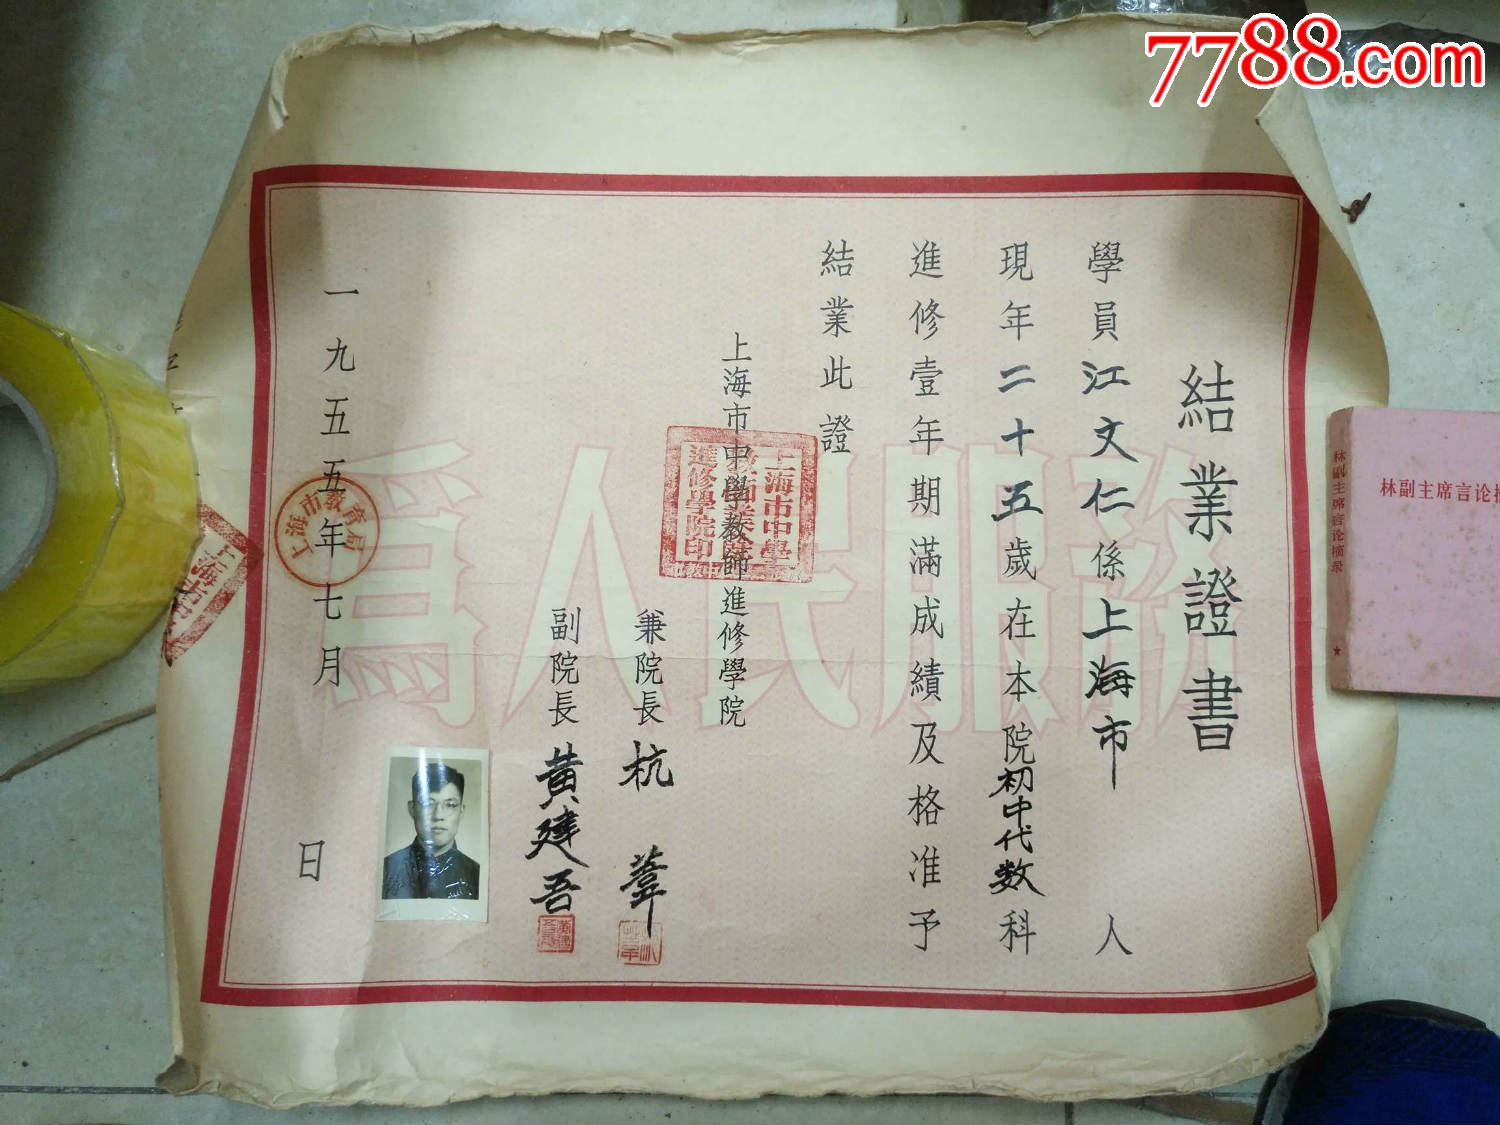 7788.com
結業證書
學員江文仁係上海市人
現年二十五歲在本院初中代数科
進修壹年期滿成績及格准予
結業此證
上海市中學教師進修學院
兼院長 杭葦
副院長 黄建吾
一九五五年七月 日
為人民服務
上海市教育局
林副主席言论摘录
林副主席言论摘